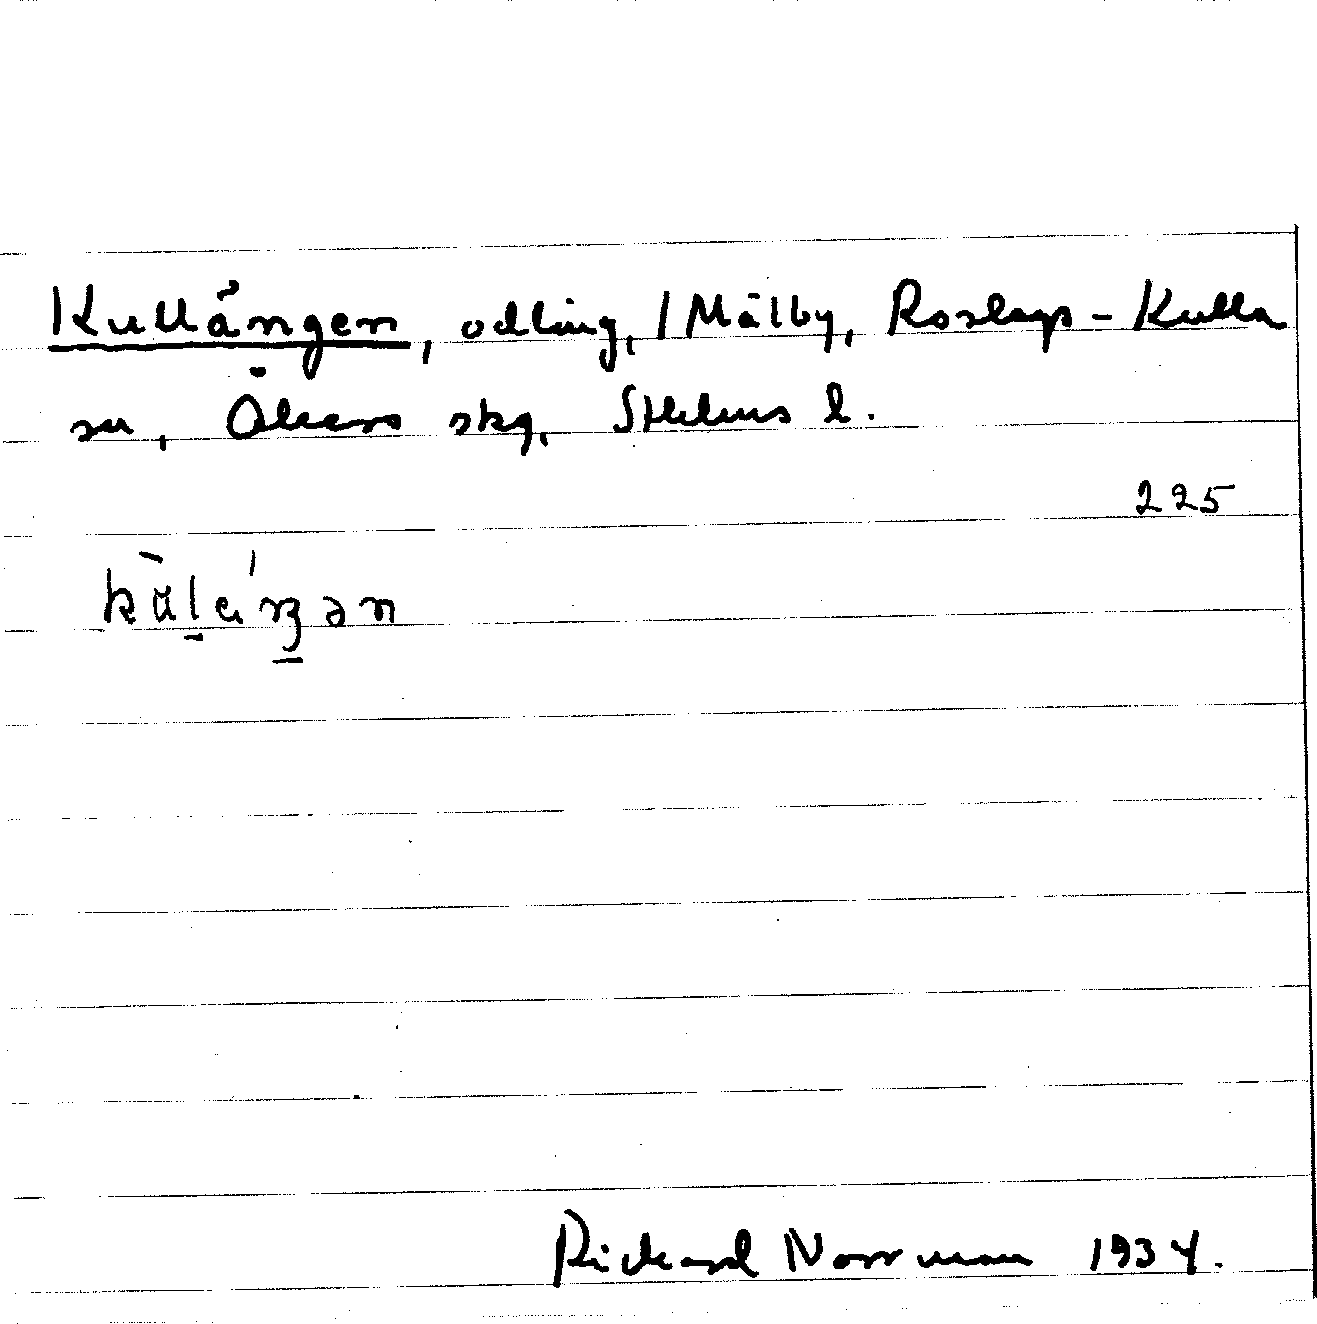 Kullängen, odling, / Målby, Roslags-Kulla
sn, Åkers skg, Sthlms l.
225
Rickard Norrman 1934.